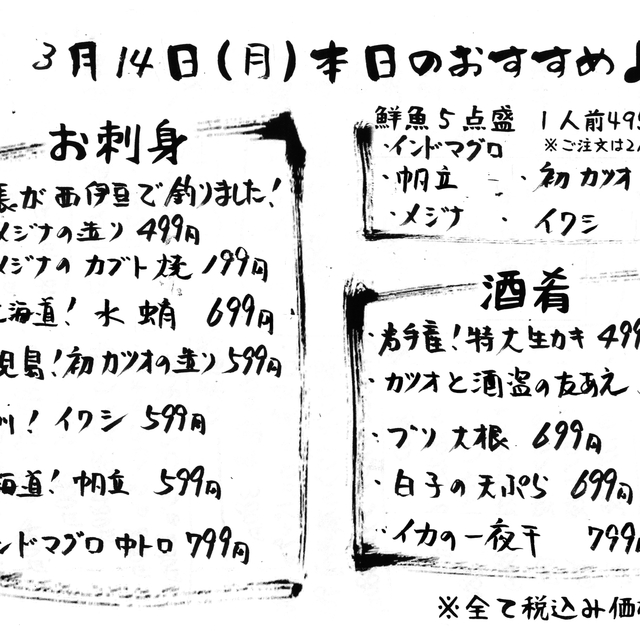 3月14日(月)本日のおすすめ♪
お刺身
長が西伊豆で釣りました!
メジナの造り 499円
メジナのカブト焼 199円
北海道! 水蛸 699円
児島! 初カツオの造り 599円
州! イワシ 599円
海道! 帆立 599円
ンドマグロ中トロ 799円
鮮魚5点盛 1人前499
・インドマグロ ※ご注文は2人
・帆立 ・初カツオ
・メジナ ・イワシ
酒肴
・岩手産! 特大生カキ 499
・カツオと酒盗の友あえ
・ブリ大根 699円
・白子の天ぷら 699円
・イカの一夜干 799円
※全て税込み価格